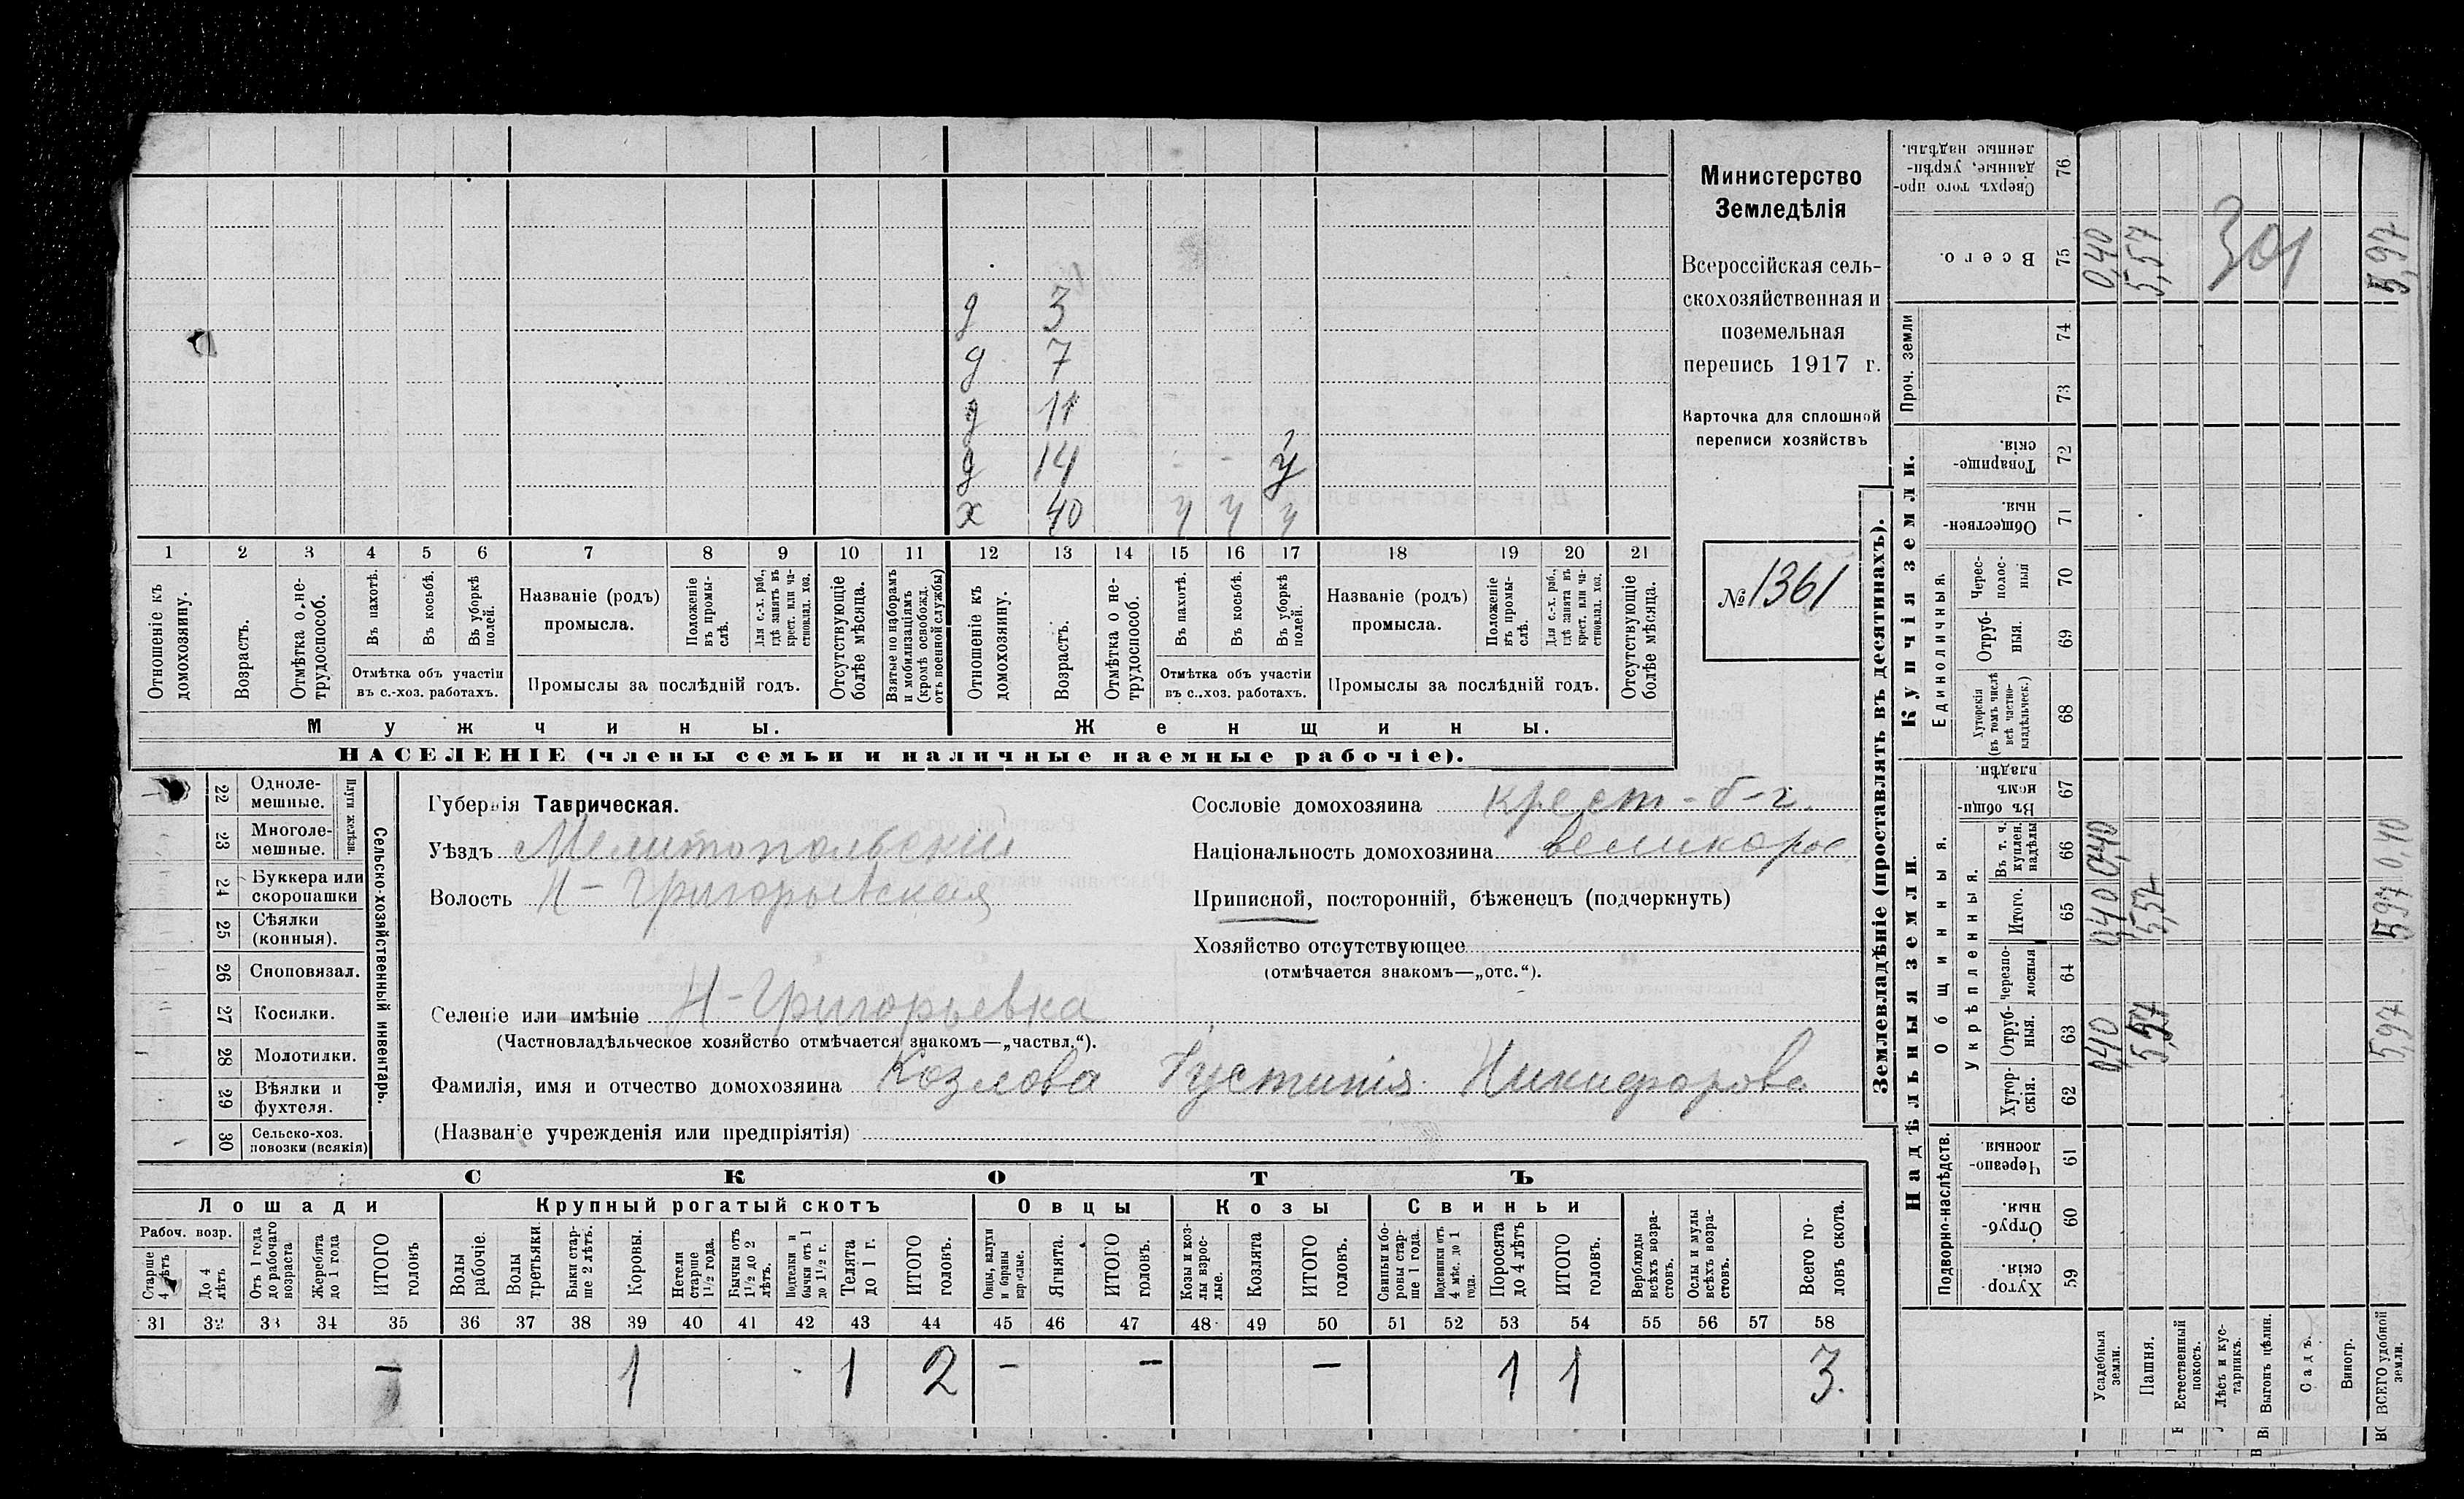 д 3
д 7
д 11
д 14 - - у
х 40 у у у
1 2 3 4 5 6 7 8 9 10 11 12 13 14 15 16 17 18 19 20 21
Отношеніе къ домохозяину.
Возрастъ.
Отмѣтка о не-трудоспособ.
Въ пахотѣ.
Въ косьбѣ.
Въ уборкѣ полей.
Отмѣтка объ участіи
въ с.-хоз. работахъ.
Названіе (родъ)
промысла.
Положеніе въ промы-слѣ.
Для с.-х. раб., гдѣ занятъ въ крест. или ча-стновлад. хоз.
Промыслы за послѣдній годъ.
Отсутствующіе болѣе мѣсяца.
Взятые по наборамъ и мобилизаціямъ (кромѣ освобожд. отъ военной службы)
Отношеніе къ домохозяину.
Возрастъ.
Отмѣтка о не-трудоспособ.
Въ пахотѣ.
Въ косьбѣ.
Въ уборкѣ полей.
Отмѣтка объ участіи
въ с.-хоз. работахъ.
Названіе (родъ)
промысла.
Положеніе въ промы-слѣ.
Для с.-х. раб., гдѣ занята въ крест. или ча-стновлад. хоз.
Промыслы за послѣдній годъ.
Отсутствующіе болѣе мѣсяца.
Мужчины.
Женщины.
НАСЕЛЕНІЕ (члены семьи и наличные наемные рабочіе).
Министерство
Земледѣлія
Всероссійская сель-
скохозяйственная и
поземельная
перепись 1917 г.
Карточка для сплошной
переписи хозяйствъ
№ 1361
22 Одноле-
мешные.
23 Многоле-
мешные.
Плуги желѣзн.
24 Буккера или
скоропашки
25 Сѣялки
(конныя).
26 Сноповязал.
27 Косилки.
28 Молотилки.
29 Вѣялки и
фухтеля.
30 Сельско-хоз.
повозки (всякія)
Сельско-хозяйственный инвентарь.
Губернія Таврическая.
Уѣздъ Мелитопольскій
Волость Н-Григорьевская
Селеніе или имѣніе Н-Григорьевка
(Частновладѣльческое хозяйство отмѣчается знакомъ—„частвл.“).
Фамилія, имя и отчество домохозяина Козлова Іустинія Никифорова
(Названіе учрежденія или предпріятія)
Сословіе домохозяина крест-б-г.
Національность домохозяина великорос
Приписной, посторонній, бѣженецъ (подчеркнуть)
Хозяйство отсутствующее
(отмѣчается знакомъ—„отс.“).
СКОТЪ
Лошади
Крупный рогатый скотъ
Овцы
Козы
Свиньи
Рабоч. возр.
Старше 4 лѣтъ
До 4 лѣтъ
Отъ 1 года до рабочаго возраста
Жеребята до 1 года
ИТОГО головъ
Волы рабочіе.
Волы третьяки.
Быки стар-ше 2 лѣтъ.
Коровы.
Нетели старше 1 1/2 года.
Бычки отъ 1 1/2 до 2 лѣтъ.
Подтелки и бычки отъ 1 до 1 1/2 г.
Телята до 1 г.
ИТОГО головъ.
Овцы, валухи и бараны взрослые.
Ягнята.
ИТОГО головъ.
Козы и коз-лы взрос-лые.
Козлята
ИТОГО головъ.
Свиньи и бо-ровы стар-ше 1 года.
Подсвинки отъ 4 мѣс. до 1 года.
Поросята до 4 лѣтъ
ИТОГО головъ.
Верблюды всѣхъ возра-стовъ.
Ослы и мулы всѣхъ возра-стовъ.
Всего го-ловъ скота.
31 32 33 34 35 36 37 38 39 40 41 42 43 44 45 46 47 48 49 50 51 52 53 54 55 56 57 58
- 1 1 2 - - - 1 1 3.
Землевладѣніе (проставлять въ десятинахъ).
Надѣльныя земли.
Купчія земли.
Проч. земли
Подворно-наслѣдств.
Общинныя.
Укрѣпленныя.
Единоличныя.
Хутор-скія. 59
Отруб-ныя. 60
Черезпо-лосныя 61
Хутор-скія. 62
Отруб-ныя. 63
Черезпо-лосныя 64
Итого. 65
Въ т. ч. куплен. надѣлы 66
Въ общин-номъ владѣн. 67
Хуторскія (въ томъ числѣ всѣ частно-владѣльческ.) 68
Отруб-ныя. 69
Черес-полос-ныя 70
Обществен-ныя. 71
Товарище-скія. 72
73
74
Всего. 75
Сверхъ того про-данные, укрѣп-ленные надѣлы. 76
Усадебныя земли. 0,40 0,40 0,40 0,40
Пашня. 5,57 5,57 5,57
Естественный покосъ.
Лѣсъ и кус-тарникъ.
Выгонъ цѣлин.
Садъ.
Виногр.
ВСЕГО удобной земли. 5,97 5,97 0,40 5,97
301